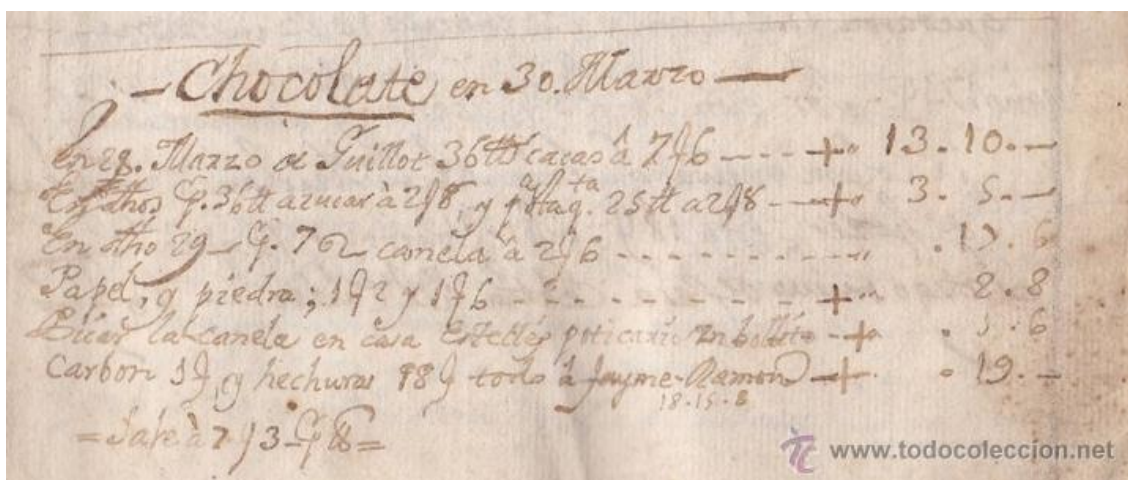 - Chocolate en 30. Marzo -
En 28. Marzo a Guillot 36 tt cacao à 7 f 6 - - - + 13 . 10 . -
En dhos 36 tt azucar à 2 f 8, y 25 tt a 2 f 8 - + 3 . 5 . -
En dho 29 - 7 canela à 2 f 6 - - - - - - - . 17 . 6
Papel, y piedra; 1 f 2 y 1 f 6 - - - - - - - + 2 . 8
Picar la canela en casa Estellés poticario - + . 1 . 6
Carbon 1 f, y hechuras 18 f todo à Jayme Ramon - + . 19 . -
18 . 19 . 8
= Sale à 7 f 3 =
www.todocoleccion.net